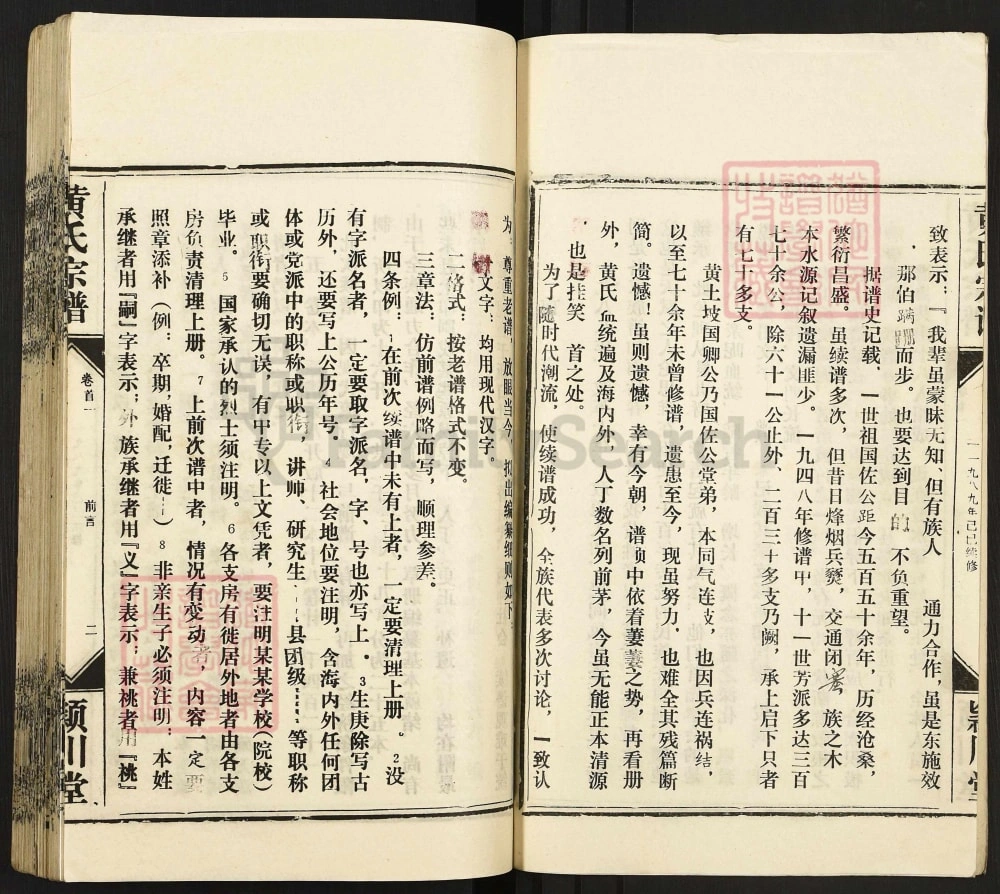 致表示：『我辈虽蒙昧无知、但有族人　通力合作，虽是东施效
那伯蹒跚而步。也要达到目的　不负重望。
据谱史记载、一世祖国佐公距今五百五十余年，历经沧桑，
繁衍昌盛。虽续谱多次，但昔日烽烟兵燹，交通闭塞　族之木
本水源记叙遗漏匪少。一九四八年修谱中，十一世芳派多达三百
七十余公，除六十一公止外、二百三十多支乃阙，承上启下只者
有七十多支。
黄土坡国卿公乃国佐公堂弟，本同气连支，也因兵连祸结，
以至七十余年未曾修谱，遗患至今，现虽努力，也难全其残篇断
简。遗憾！虽则遗憾，幸有今朝，谱中依着萋萋之势，再看册
外，黄氏血统遍及海内外，人丁数名列前茅，今虽无能正本清源
也是挂笑　首之处。
为了随时代潮流，使续谱成功，全族代表多次讨论，一致认
一一九八九年己巳续修
黄氏宗谱
卷首一
前言
二
颍川堂
为：尊重老谱，放眼当今，拟出编纂细则如下
一文字：均用现代汉字。
二格式：按老谱格式不变。
三章法：仿前谱例略而写，顺理参差。
四条例：1在前次续谱中未有上者，一定要清理上册。2没
有字派名者，一定要取字派名，字、号也亦写上。3生庚除写古
历外，还要写上公历年号。4社会地位要注明，含海内外任何团
体或党派中的职称或职衔，讲师、研究生……县团级……等职称
或职衔要确切无误，有中专以上文凭者，要注明某某学校（院校）
毕业。5国家承认的烈士须注明。6各支房有徙居外地者由各支
房负责清理上册。7上前次谱中者，情况有变动者，内容一定要
照章添补（例：卒期，婚配，迁徙……）8非亲生子必须注明：本姓
承继者用『嗣』字表示；外族承继者用『义』字表示；兼祧者用『祧』